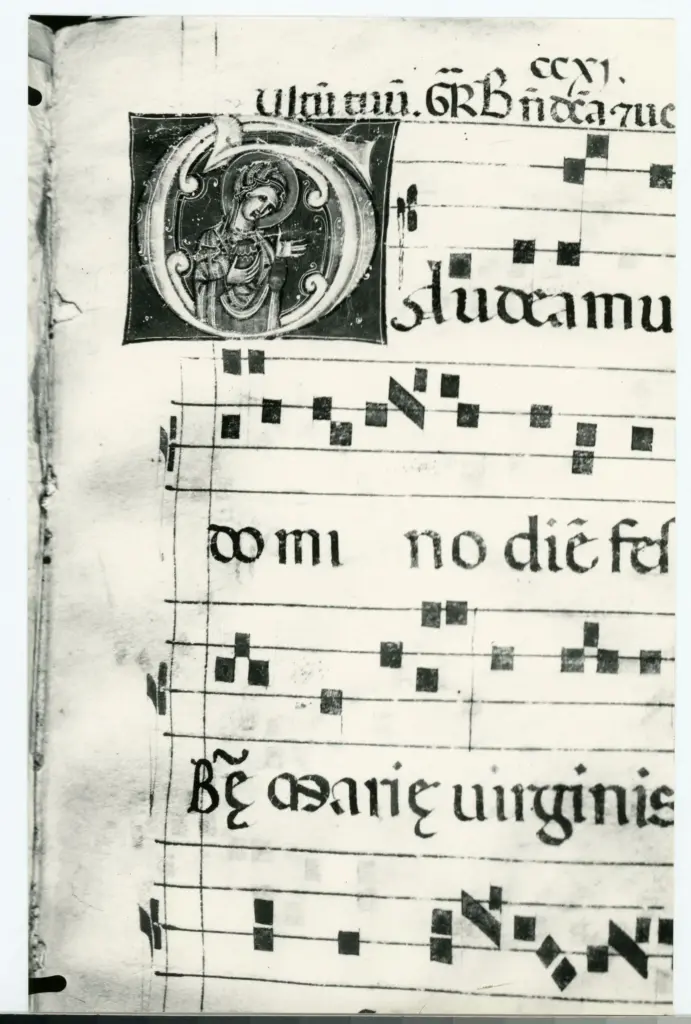 ccxj.
Ultū tuū. GR̄ B n̄ dc̄a ⁊ uc
G
audeamu
domi no diē fes
Bę̃ Marię uirginis